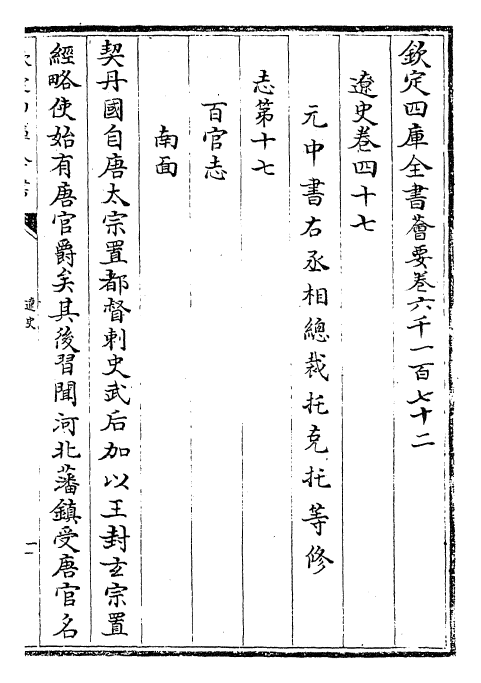 欽定四庫全書薈要卷六千一百七十二
遼史卷四十七
元中書右丞相總裁托克托等修
志第十七
百官志
南面
契丹國自唐太宗置都督刺史武后加以王封玄宗置
經略使始有唐官爵矣其後習聞河北藩鎮受唐官名
遼史
一